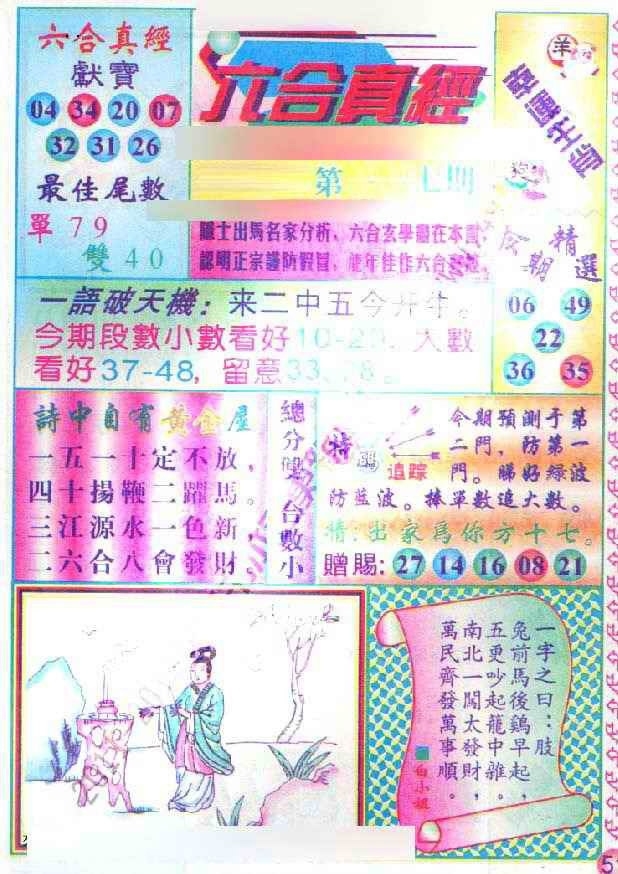 六合真經
獻寶
04 34 20 07
32 31 26
最佳尾數
單 7 9
雙 4 0
六合真經
第 七期
出馬名家分析、六合玄學盡在本圖
認明正宗謹防假冒、
羊
期
精選
06 49
22
36 35
一語破天機：来二中五今开牛。
今期段數小數看好10-20，大數
看好37-48，留意33
詩中自有黃金屋
一五一十定不放，
四十揚鞭二躍馬。
三江源水一色新，
二六合八會發財。
總分雙
合數小
特碼
追踪
今期預測于第
二門，防第一
門。睇好綠波
防藍波。捧單數追大數。
出家為你方十七。
贈賜：27 14 16 08 21
一字之曰：肢
兔前馬後鷄早起，
五更吵起龍中雜。
南北一闖太發財，
萬民齊發萬事順。
白小姐